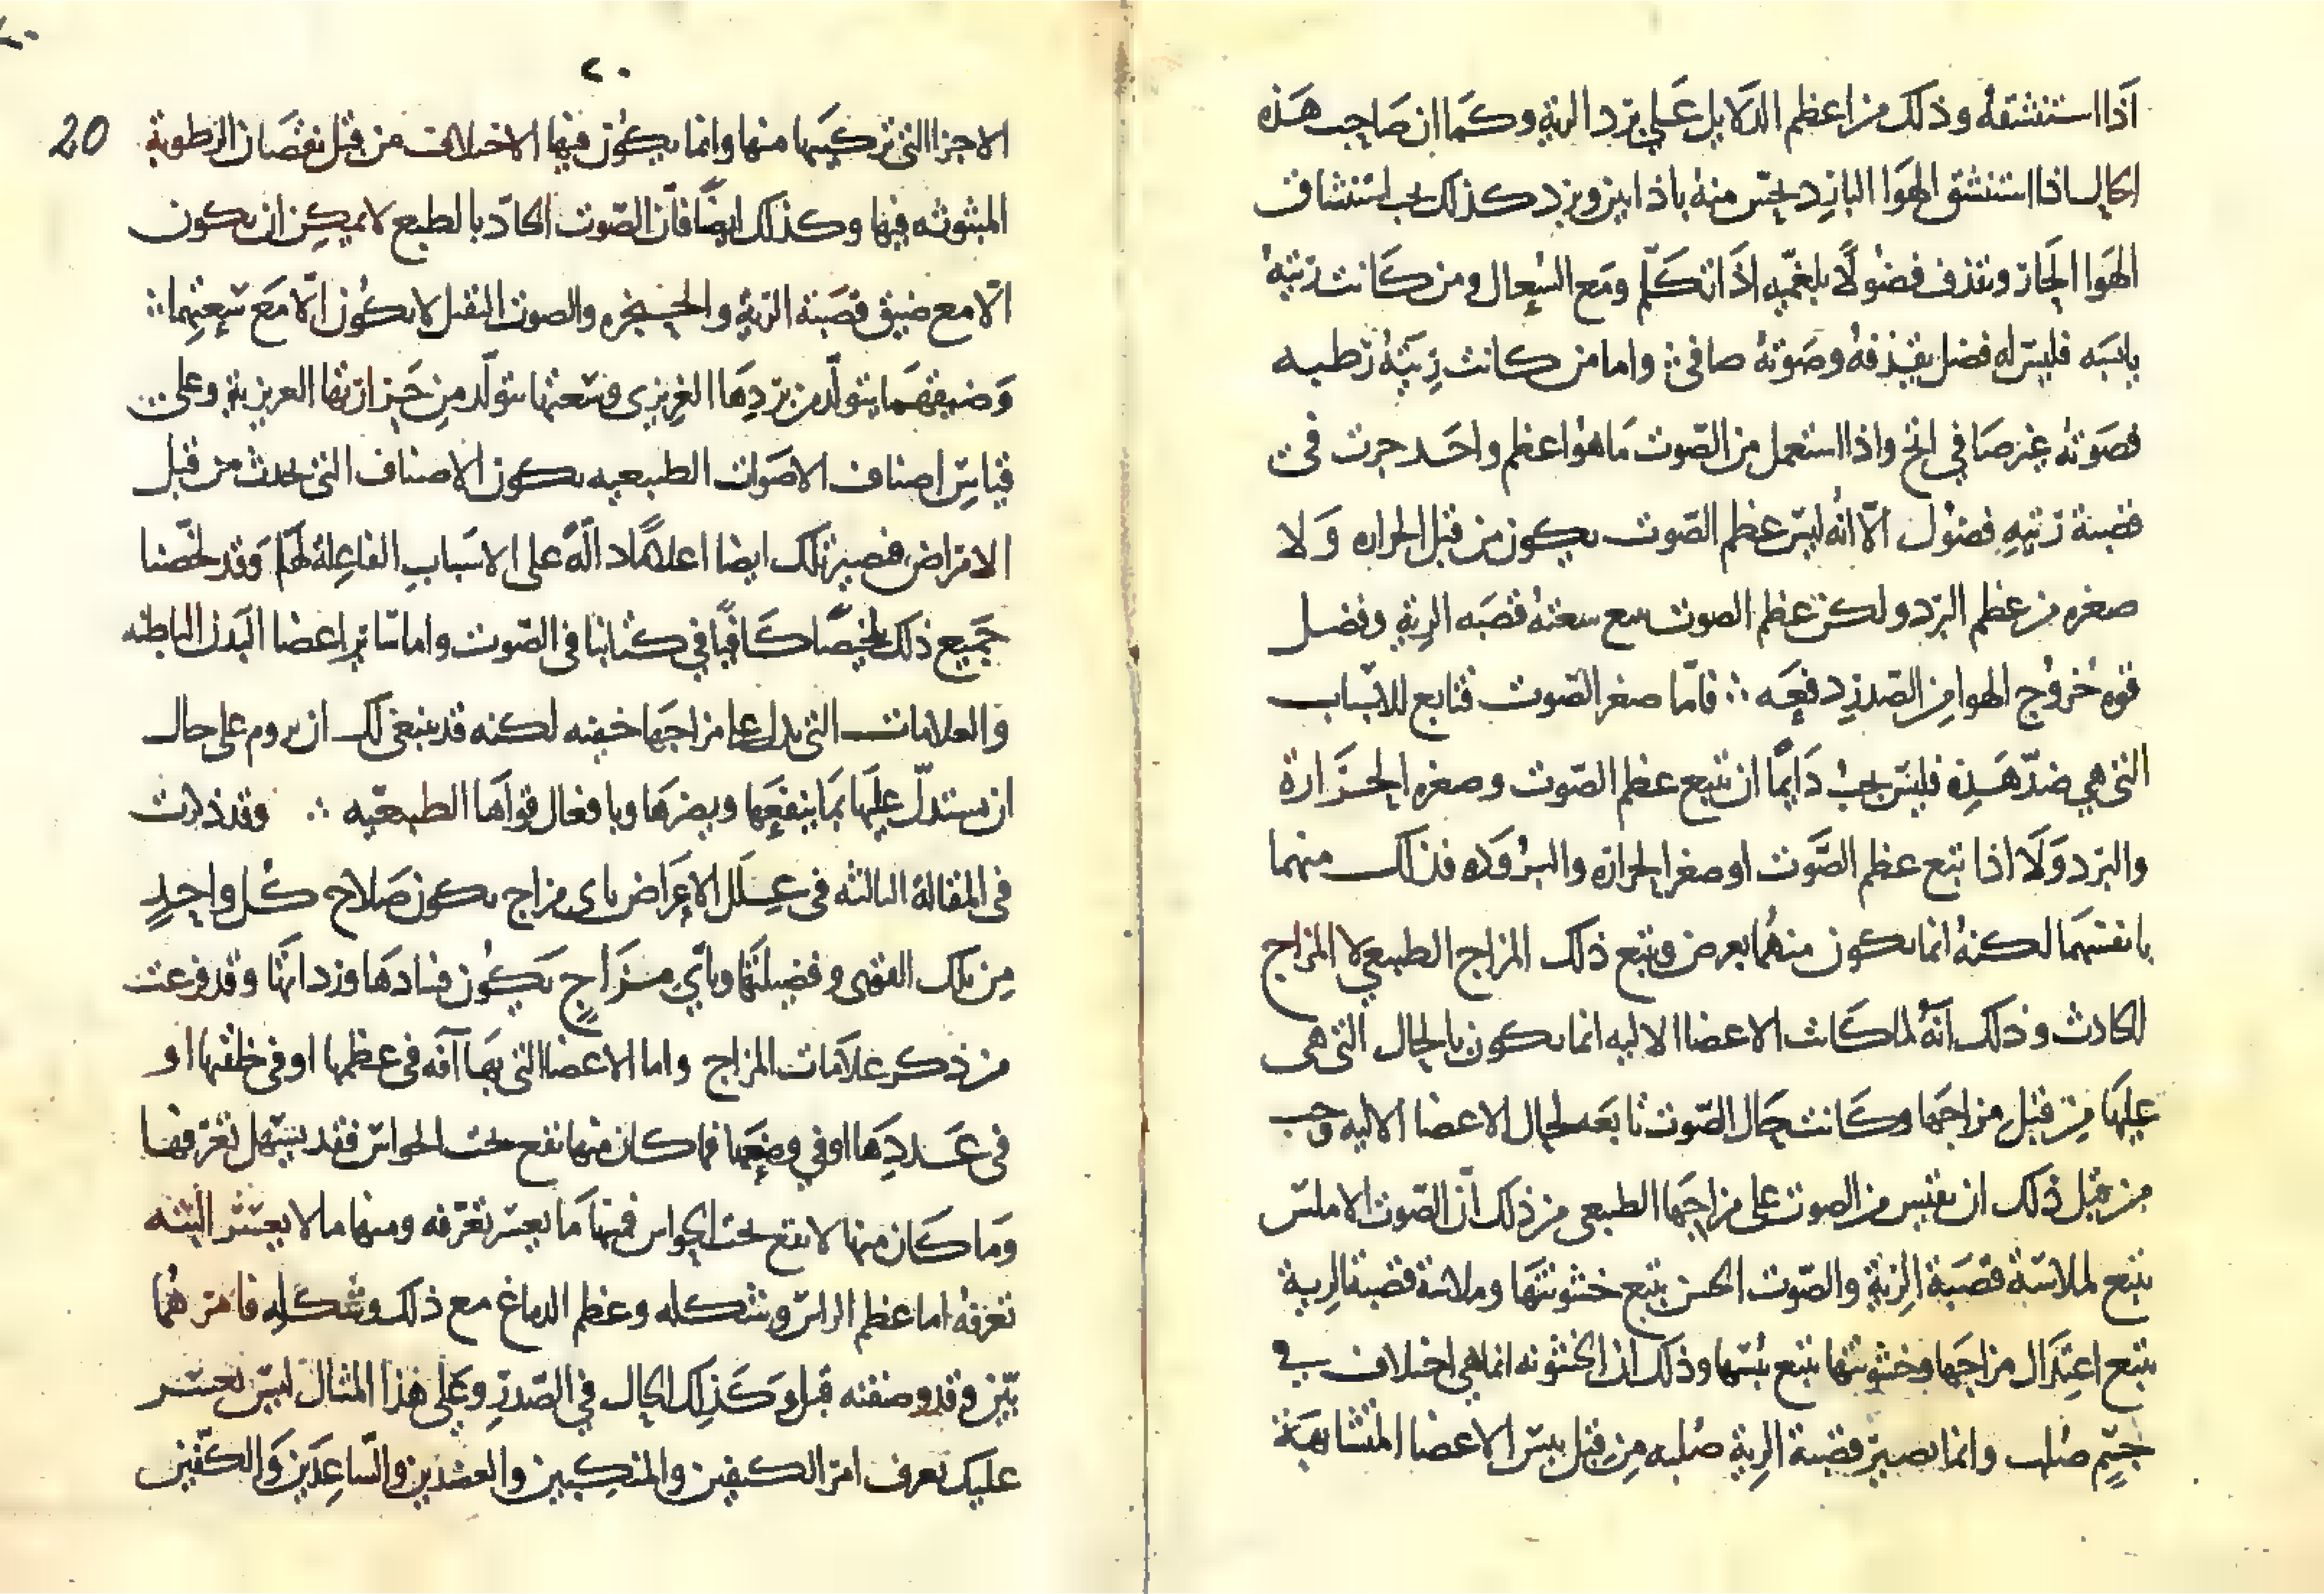 اذا استنشقه وذلك من اعظم الدلايل علي برد الرية وكما ان صاحب هذه
الحال اذا استنشق الهوا البارد يحس منه باذا بين وبرد كذلك يحب استنشاق
الهوا الحار وتقذف فضولًا بلغميه اذا تكلم ومع السعال ومن كانت ريته
يابسه فليس له فضل يقذفه وصوته صافي واما من كانت ريته رطبه
فصوته غير صافي ابح واذا استعمل من الصوت ما هوا اعظم واحد جرت في
قصبة ريته فضول الا انه ليس عظم الصوت يكون من قبل الحراره ولا
صغره من عظم البرد ولكن عظم الصوت يتبع سعته قصبه الرية وفضل
قوه خروج الهوا من الصدر دفعه فاما صغر الصوت فتابع للاسباب
التي هي ضد هذه فليس يجب دايمًا ان تتبع عظم الصوت وصغره الحرارة
والبرد ولا اذا تبع عظم الصوت او صغر الحراره والبروده فذلك منهما
بانفسهما لكنه انما يكون منهما بعرض ويتبع ذلك المزاج الطبيعي لا المزاج
الحادث وذلك انه لما كانت الاعضا الاليه انما يكون بالحال التي هي
عليها من قبل مزاجها وكانت حال الصوت تابعه لحال الاعضا الاليه وجب
من قبل ذلك ان نقتبس من الصوت علي مزاجها الطبيعي من ذلك ان الصوت الاملس
يتبع لملاسة قصبة الرية والصوت الخشن يتبع خشونتها وملاسة قصبة الرية
يتبع اعتدال مزاجها وخشونتها يتبع يبسها وذلك ان الخشونه انما هي اختلاف في
جسم صلب وانما تصير قصبة الرية صلبه من قبل يبس الاعضا المتشابهة
٢٠
20
الاجزا التي تركيبها منها وانما يكون فيها الاختلاف من قبل نقصان الرطوبة
المبثوثه فيها وكذلك ايضا فان الصوت الحاد بالطبع لا يمكن ان يكون
الا مع ضيق قصبة الرية والحنجره والصوت الثقيل لا يكون الا مع سعتهما
وضيقهما يتولد من بردها الغريزي وسعتها تتولد من حرارتها الغريزية وعلى
قياس اصناف الاصوات الطبيعيه يكون الاصناف التي تحدث من قبل
الامراض فيصير تلك ايضا اعلامًا دالة على الاسباب الفاعلة لها وقد لخصنا
جميع ذلك تلخيصا كافيا في كتابنا في الصوت واما ساير اعضا البدن الباطنه
والعلامات التي تدل علي مزاجها خفيه لكنه قد ينبغي لك ان تروم على حال
ان تستدل عليها بما ينفعها ويضرها وبافعال قواها الطبيعيه وقد ذكرت
في المقالة الثالثه في علل الاعراض باي مزاج يكون صلاح كل واحد
من تلك القوى وفضيلتها وباي مزاج يكون فسادها وردائتها وقد فرغت
من ذكر علامات المزاج واما الاعضا التي بها آفه في عظمها او في خلقتها او
في عددها او في وضعها فما كان منها تقع تحت الحواس فقد يسهل تعرفها
وما كان منها لا تقع تحت الحواس فمنها ما يعسر تعرفه ومنها ما لا يعسر البته
تعرفه اما عظم الراس وشكله وعظم الدماغ مع ذلك وشكله فامرهما
بين وقد وصفته قبل وكذلك الحال في الصدر وعلى هذا المثال ليس يعسر
عليك تعرف امر الكتفين والمنكبين والعضدين والساعدين والكفين